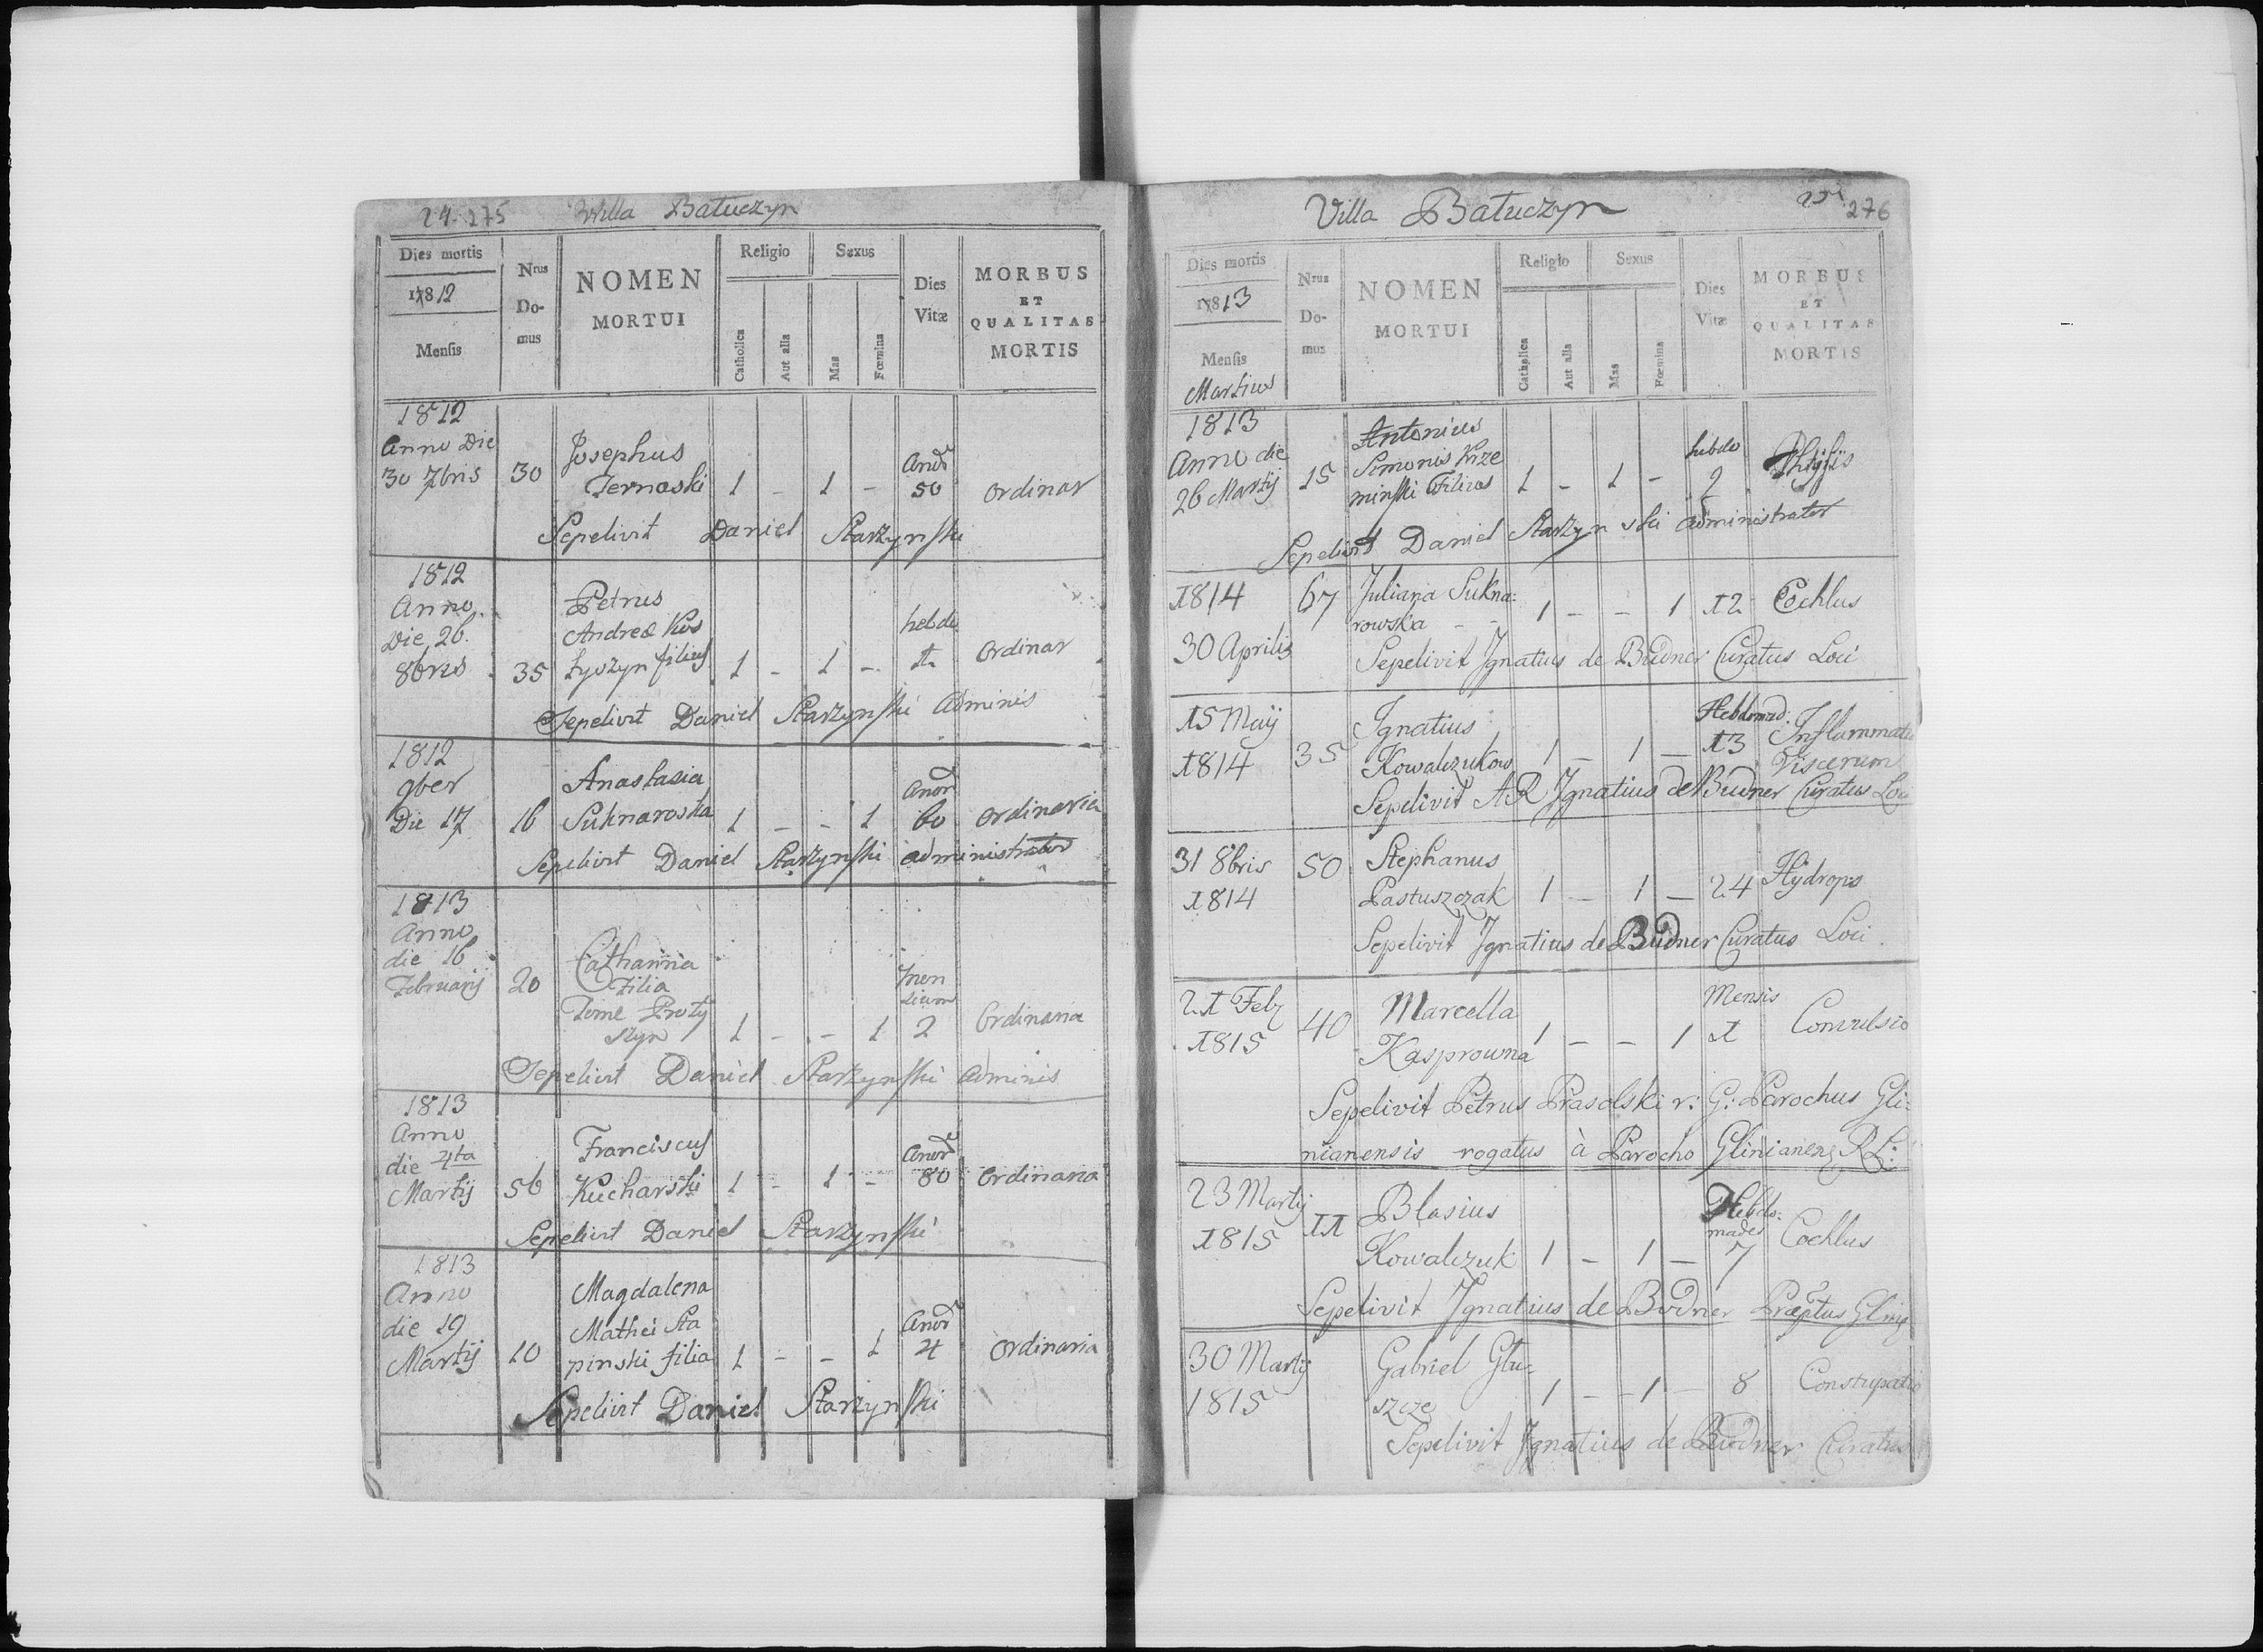 24. 275 Villa Batuczyn
Dies mortis
1812
Mensis
Nrus
Do-
mus
NOMEN
MORTUI
Religio
Catholica
Aut alia
Sexus
Mas
Fœmina
Dies
Vitæ
MORBUS
ET
QUALITAS
MORTIS
1812
Anno Die Josephus
30 7bris 30 Jernaski 1 - 1 - 50 Ordinar
Sepelivit Daniel Starzynski
1812
Anno Petrus
Die 26. Andreæ Kos hebdo
8bris 35 tyszyn filius 1 - 1 - Ordinar
Sepelivit Daniel Starzynski Adminis
1812
9ber Anastasia
Die 17 16 Suknaroska 1 - - 1 60 Ordinaria
Sepelivit Daniel Starzynski administrator
1813
Anno
die 16 Catharina
Februarij 20 Filia men
sium
1 - - 1 2 Ordinaria
Sepelivit Daniel Starzynski Adminis
1813
Anno
die 4ta Franciscus
Martij 56 Kucharski 1 - 1 - 80 Ordinaria
Sepelivit Daniel Starzynski
1813
Anno Magdalena
die 19 Mathei Sta
Martij 10 pinski filia 1 - - 1 4 Ordinaria
Sepelivit Daniel Starzynski
Villa Batuczyn 25. 276
Dies mortis
1813
Mensis
Martius
Nrus
Do-
mus
NOMEN
MORTUI
Religio
Catholica
Aut alia
Sexus
Mas
Fœmina
Dies
Vitæ
MORBUS
ET
QUALITAS
MORTIS
1813 Antonius
Anno die Simonis Krze hebdo
26 Martij 15 minski Filius 1 - 1 - 2
Sepelivit Daniel Starzynski administrator
1814 67 Juliana Sukna:
rowska - - 1 - - 1 12 Cochlus
30 Aprilis Sepelivit Ignatius de Budner Curatus Loci
15 Maij Ignatius Hebdomad:
1814 35 Kowalczukow 1 - 1 - 13 Inflammatio
Viscerum
Sepelivit AR Ignatius de Budner Curatus Loci
31 8bris 50 Stephanus
1814 Pastuszczak 1 - 1 - 24 Hydrops
Sepelivit Ignatius de Budner Curatus Loci
21 Feb Marcella Mensis
1815 40 Kasprowna 1 - - 1 1 Convulsio
Sepelivit Petrus Prasolski r: G: Parochus Gli:
nianensis rogatus à Parocho R L:
23 Martij Blasius Hebdo:
mades
1815 11 Kowalczuk 1 - 1 - 7 Cochlus
Sepelivit Ignatius de Budner
30 Martij Gabriel Glu:
1815 szcze 1 - - 1 - 8 Constupatio
Sepelivit Ignatius de Budner Curatus